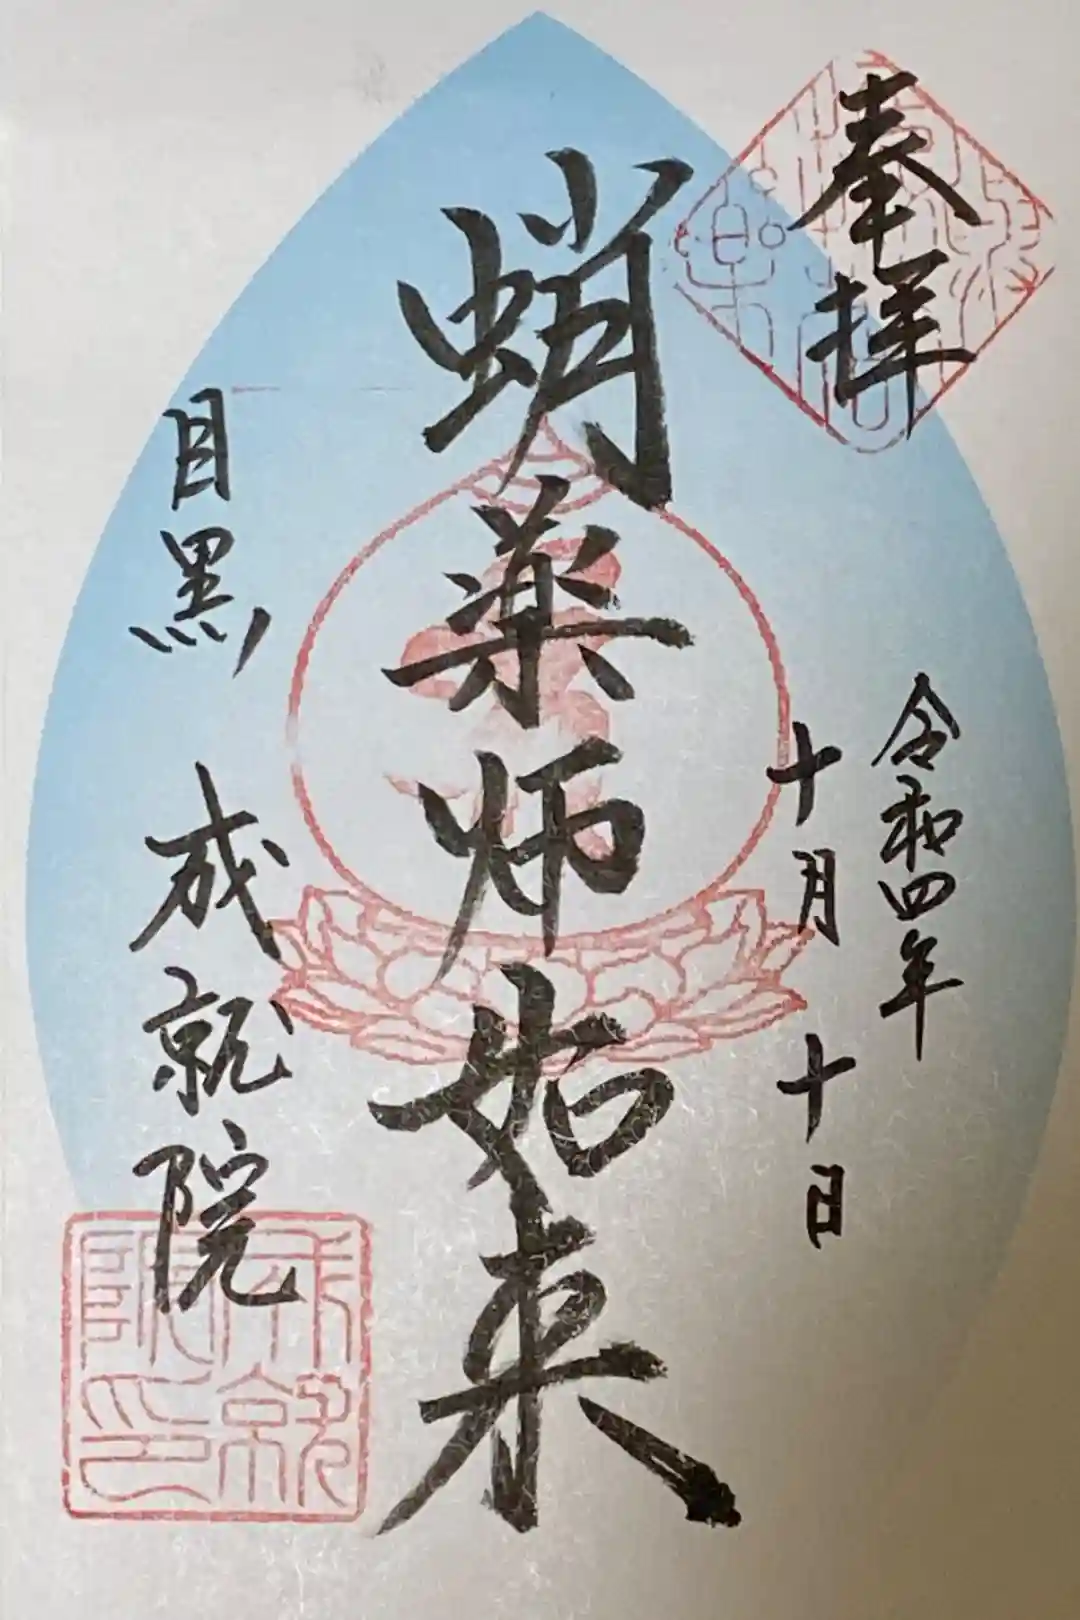 奉拝
令和四年
十月十日
蛸薬師如来
目黒 成就院
成就
院印